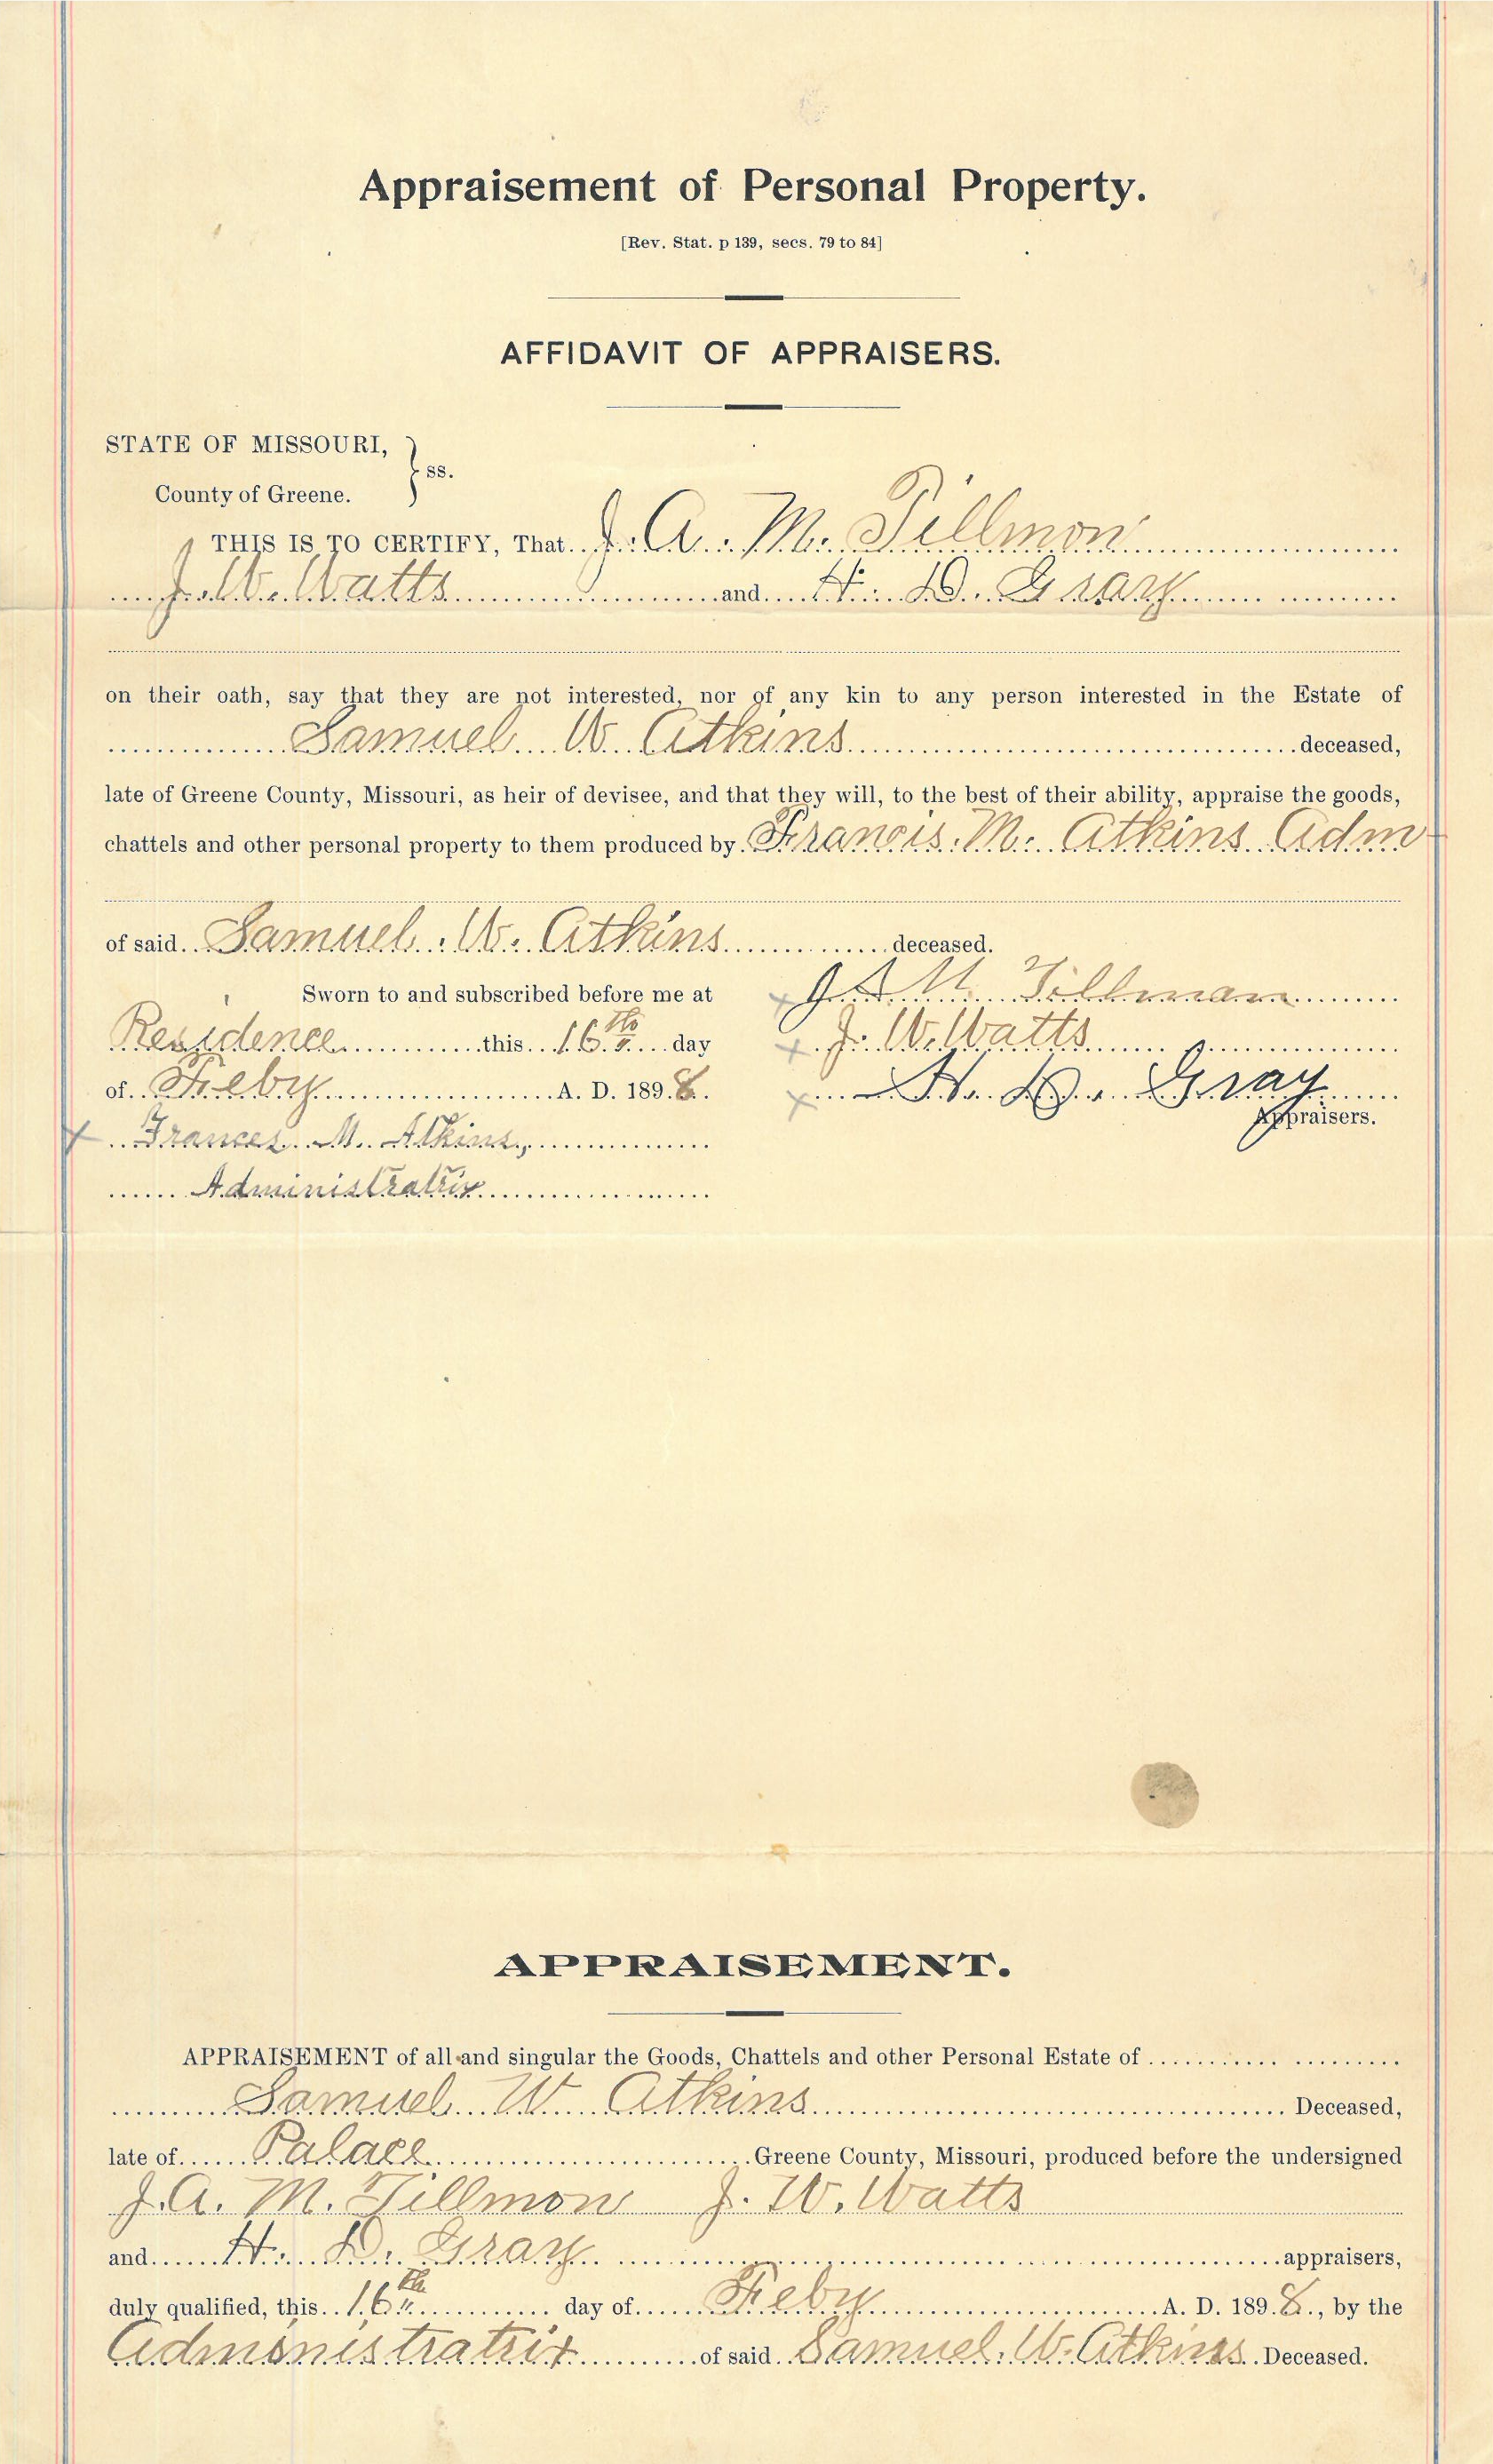 Appraisement of Personal Property.
[Rev. Stat. p 139, secs. 79 to 84]
AFFIDAVIT OF APPRAISERS.
STATE OF MISSOURI,
} ss.
County of Greene.
THIS IS TO CERTIFY, That J. A. M. Tillmon
J. W. Watts and H. D. Gray
on their oath, say that they are not interested, nor of any kin to any person interested in the Estate of
Samuel W. Atkins deceased,
late of Greene County, Missouri, as heir of devisee, and that they will, to the best of their ability, appraise the goods,
chattels and other personal property to them produced by Francis. M. Atkins Adm
of said Samuel. W. Atkins deceased.
Sworn to and subscribed before me at
x J A M Tillman
Residence this 16th day
x J. W. Watts
of Feby A. D. 1898.
x H. D. Gray
Appraisers.
x Frances M. Atkins,
Administratrix
APPRAISEMENT.
APPRAISEMENT of all and singular the Goods, Chattels and other Personal Estate of
Samuel W. Atkins Deceased,
late of Palace Greene County, Missouri, produced before the undersigned
J. A. M. Tillmon J. W. Watts
and H. D. Gray appraisers,
duly qualified, this 16th day of Feby A. D. 1898., by the
Admonistratrix of said Samuel. W. Atkins Deceased.